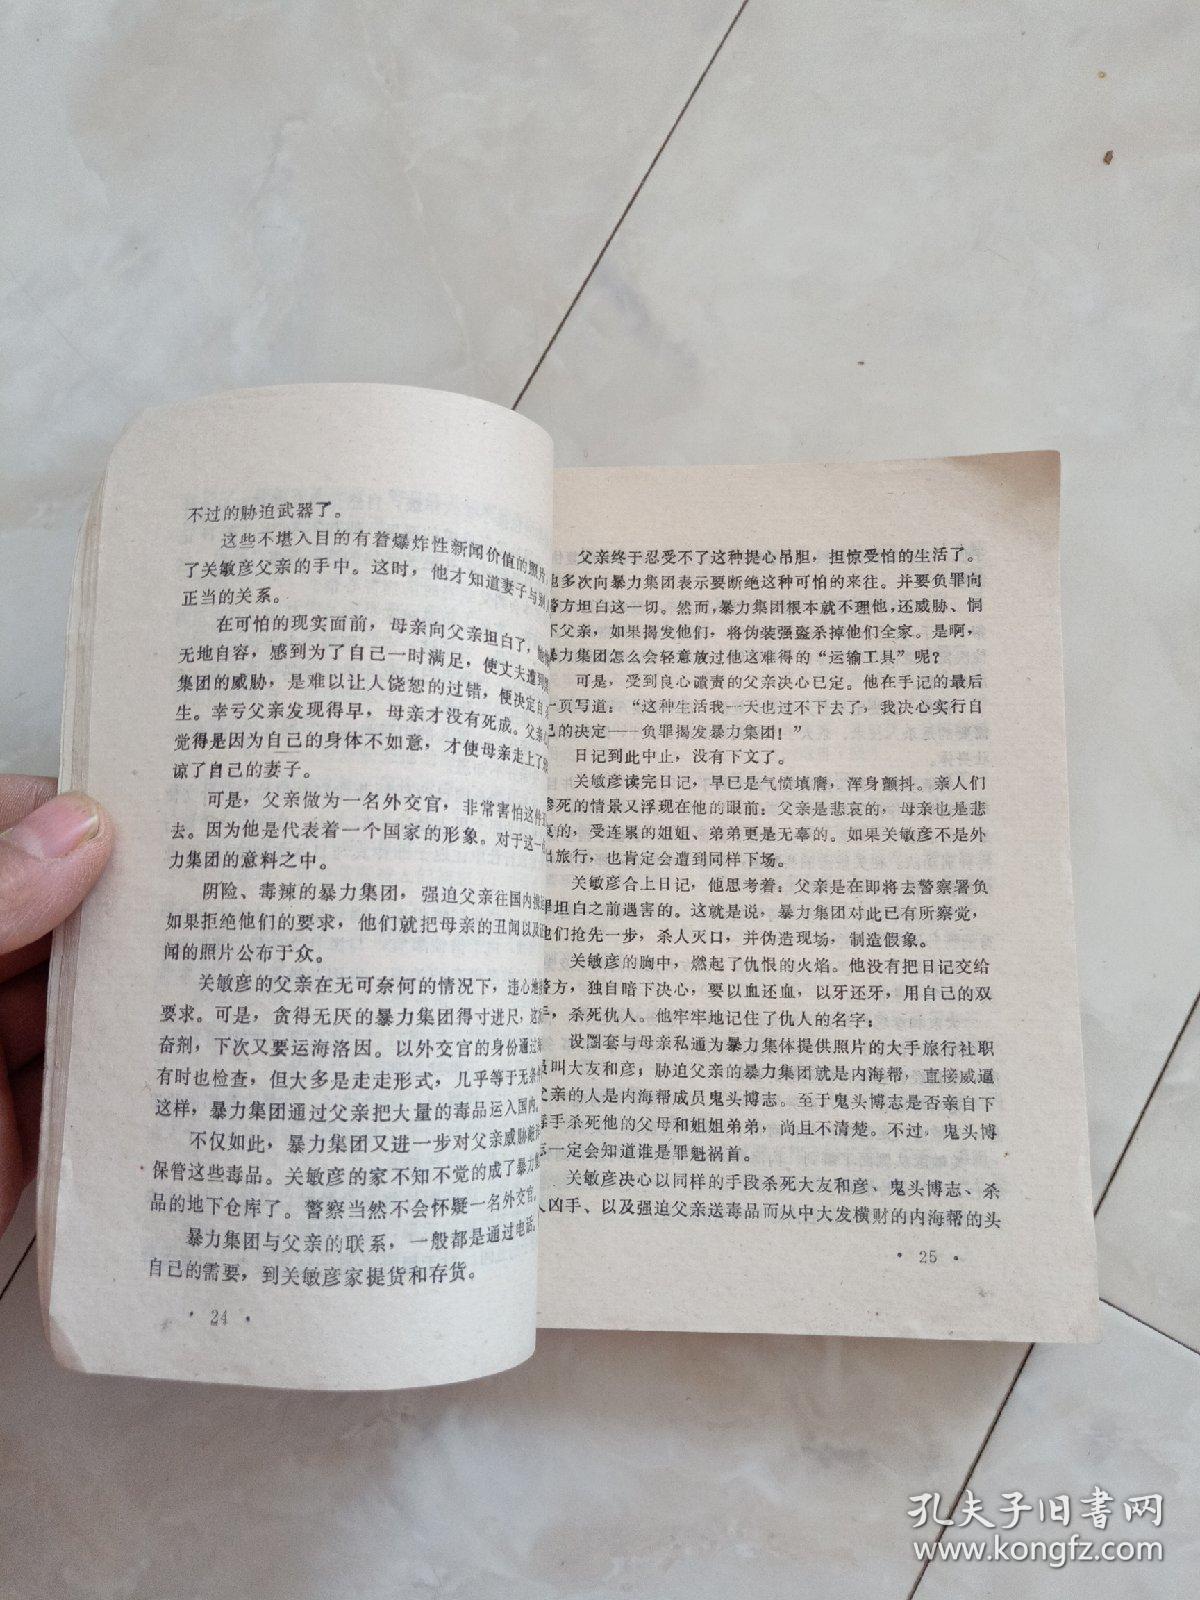 不过的胁迫武器了。
这些不堪入目的有着爆炸性新闻价值的照片
了关敏彦父亲的手中。这时，他才知道妻子与别
正当的关系。
在可怕的现实面前，母亲向父亲坦白了，
无地自容，感到为了自己一时满足，使丈夫遭到
集团的威胁，是难以让人饶恕的过错，便决定自
生。幸亏父亲发现得早，母亲才没有死成。父亲
觉得是因为自己的身体不如意，才使母亲走上了
谅了自己的妻子。
可是，父亲做为一名外交官，非常害怕这件
去。因为他是代表着一个国家的形象。对于这一
力集团的意料之中。
阴险、毒辣的暴力集团，强迫父亲往国内
如果拒绝他们的要求，他们就把母亲的丑闻以及
闻的照片公布于众。
关敏彦的父亲在无可奈何的情况下，违心地
要求。可是，贪得无厌的暴力集团得寸进尺，这
奋剂，下次又要运海洛因。以外交官的身份通过
有时也检查，但大多是走走形式，几乎等于无
这样，暴力集团通过父亲把大量的毒品运入国内。
不仅如此，暴力集团又进一步对父亲威胁
保管这些毒品。关敏彦的家不知不觉的成了暴力
品的地下仓库了。警察当然不会怀疑一名外交官。
暴力集团与父亲的联系，一般都是通过电话。
自己的需要，到关敏彦家提货和存货。
· 24 ·
父亲终于忍受不了这种提心吊胆，担惊受怕的生活了。
也多次向暴力集团表示要断绝这种可怕的来往。并要负罪向
警方坦白这一切。然而，暴力集团根本就不理他，还威胁、恫
下父亲，如果揭发他们，将伪装强盗杀掉他们全家。是啊，
暴力集团怎么会轻意放过他这难得的“运输工具”呢？
可是，受到良心谴责的父亲决心已定。他在手记的最后
一页写道：“这种生活我一天也过不下去了，我决心实行自
己的决定——负罪揭发暴力集团！”
日记到此中止，没有下文了。
关敏彦读完日记，早已是气愤填膺，浑身颤抖。亲人们
惨死的情景又浮现在他的眼前：父亲是悲哀的，母亲也是悲
哀的，受连累的姐姐、弟弟更是无辜的。如果关敏彦不是外
出旅行，也肯定会遭到同样下场。
关敏彦合上日记，他思考着：父亲是在即将去警察署负
罪坦白之前遇害的。这就是说，暴力集团对此已有所察觉，
他们抢先一步，杀人灭口，并伪造现场，制造假象。
关敏彦的胸中，燃起了仇恨的火焰。他没有把日记交给
警方，独自暗下决心，要以血还血，以牙还牙，用自己的双
手，杀死仇人。他牢牢地记住了仇人的名字：
设圈套与母亲私通为暴力集体提供照片的大手旅行社职
员叫大友和彦；胁迫父亲的暴力集团就是内海帮，直接威逼
父亲的人是内海帮成员鬼头博志。至于鬼头博志是否亲自下
毒手杀死他的父母和姐姐弟弟，尚且不清楚。不过，鬼头博
志一定会知道谁是罪魁祸首。
关敏彦决心以同样的手段杀死大友和彦、鬼头博志、杀
人凶手、以及强迫父亲送毒品而从中大发横财的内海帮的头
· 25 ·
孔夫子旧书网
www.kongfz.com